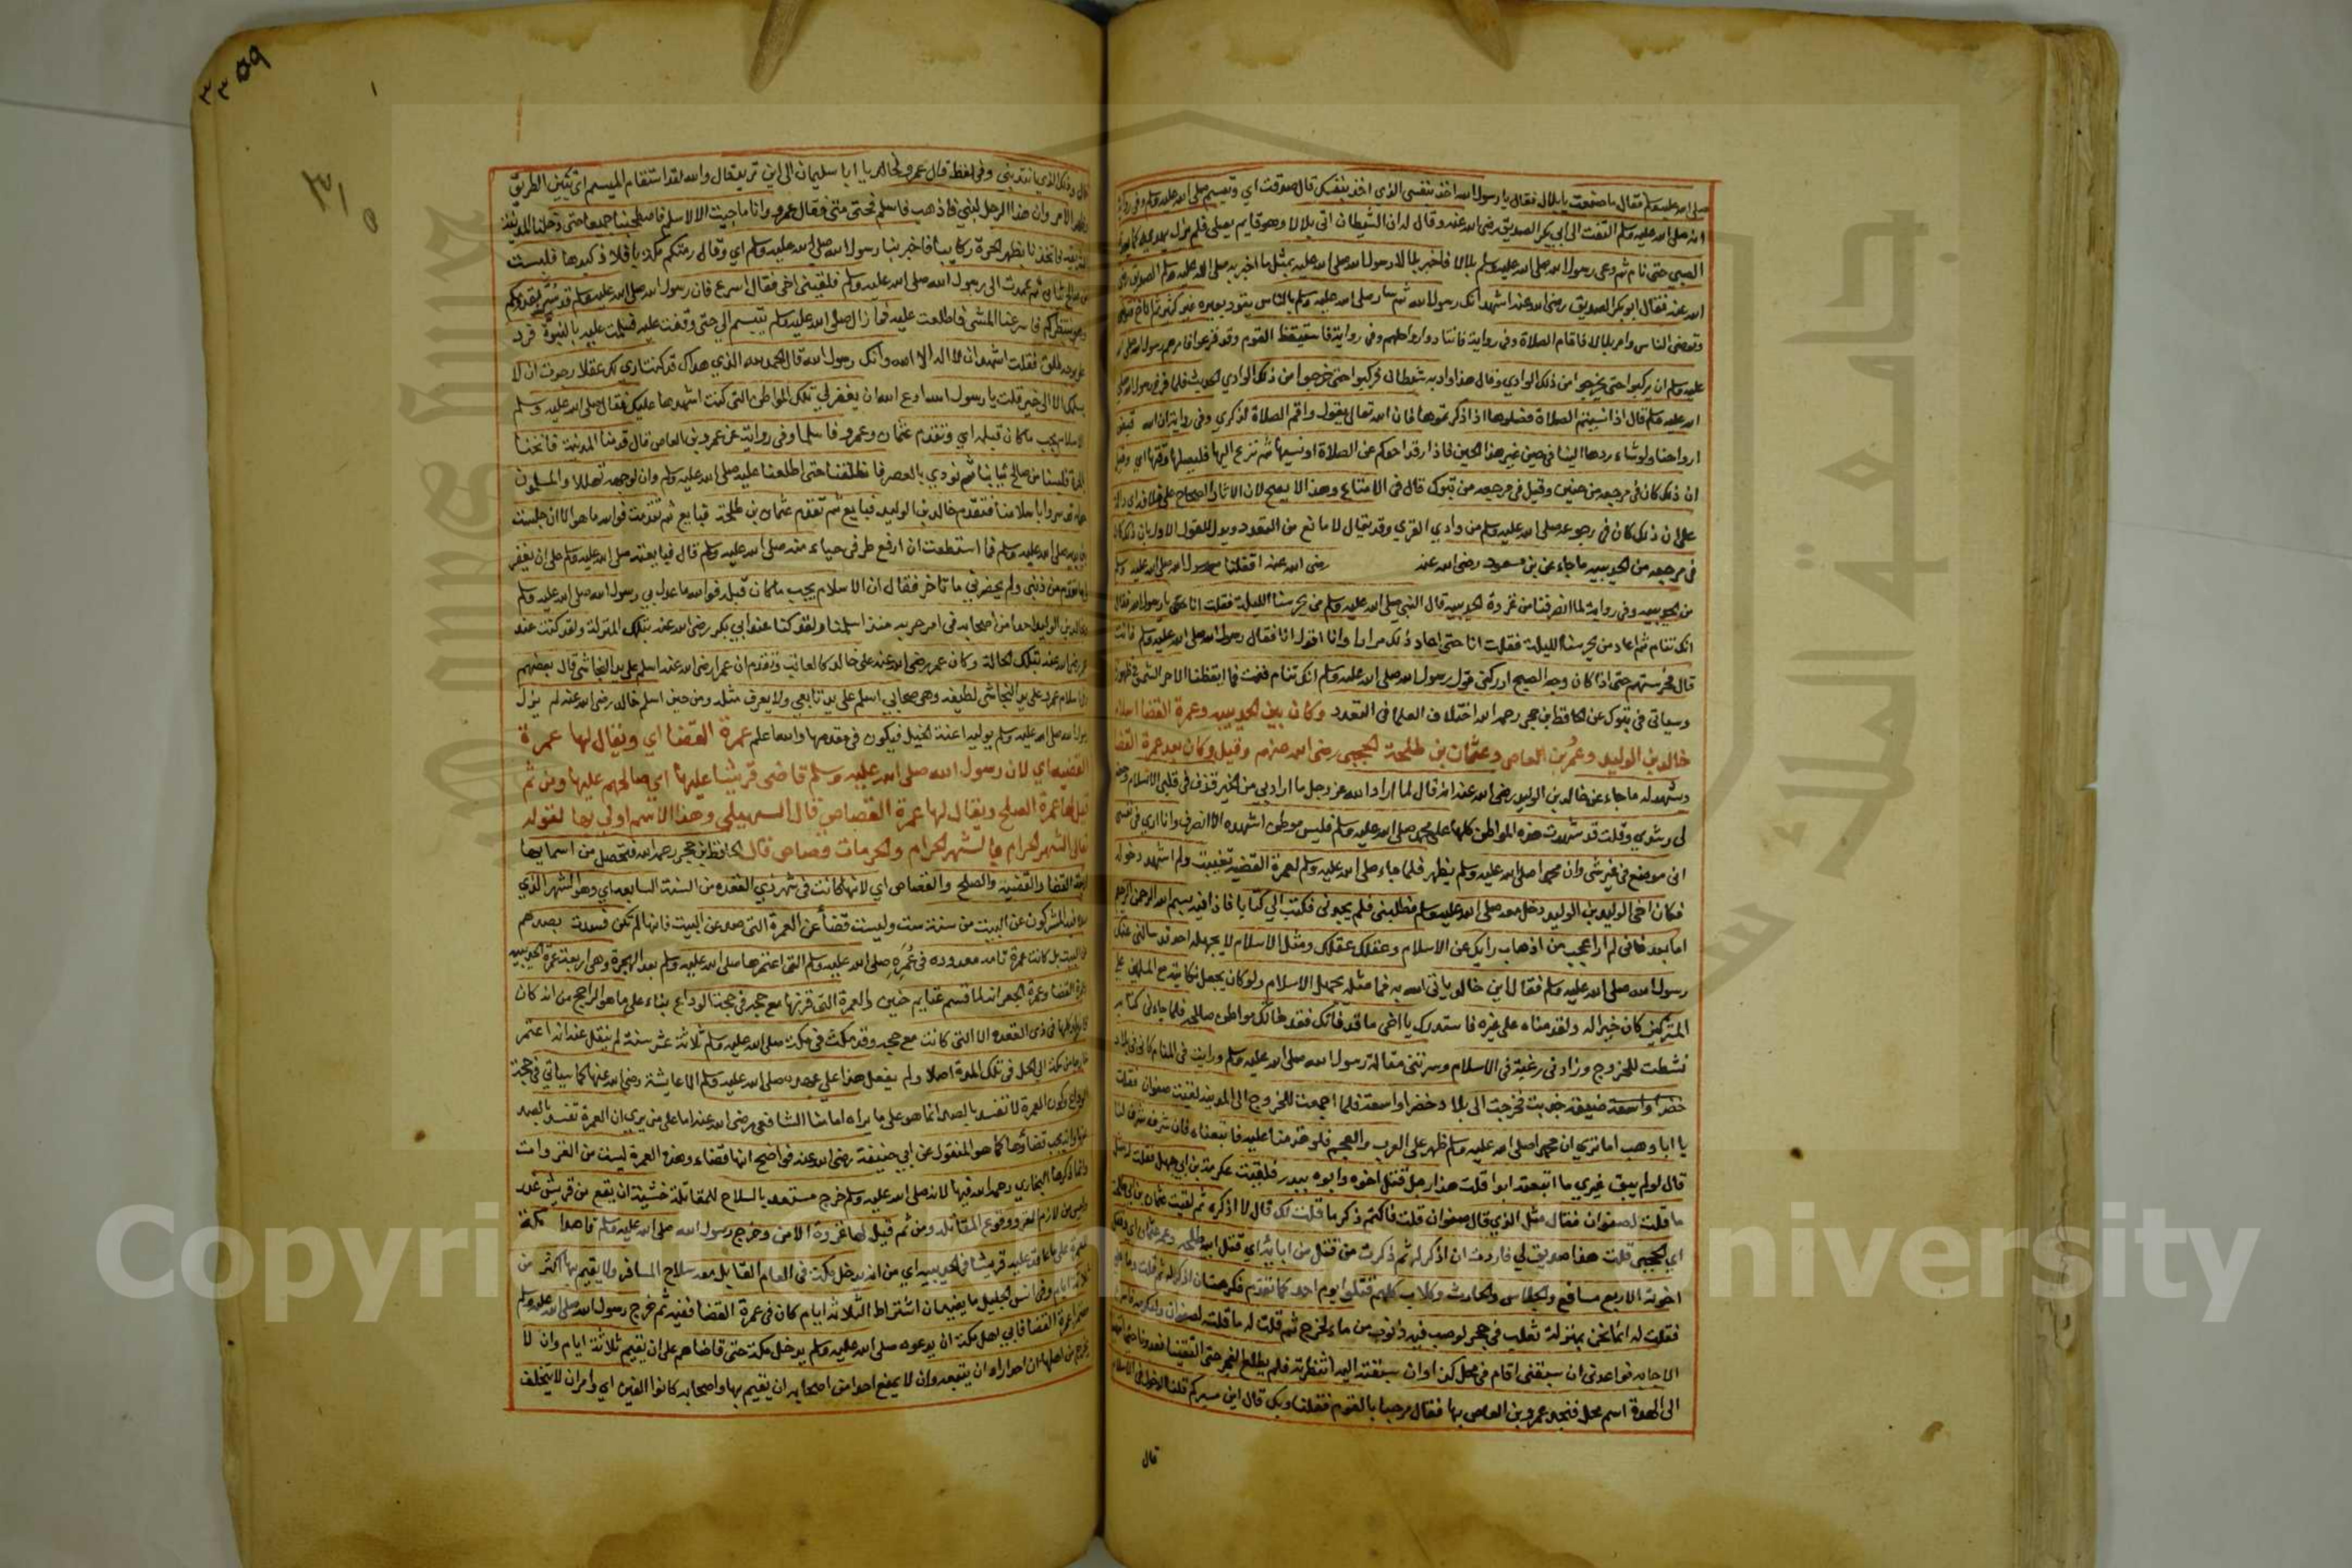 صلى الله عليه وسلم فقال ما صنعت يا بلال فقال يا رسول الله اخذ بنفسي الذي اخذ بنفسك قال صدقت اي وتبسم صلى الله عليه وسلم وفي رواية
انه صلى الله عليه وسلم التفت الى ابي بكر الصديق رضى الله عنه وقال له ان الشيطان اتى بلالا وهو قايم يصلى فلم يزل
الصبي حتى نام ثم دعى رسول الله صلى الله عليه وسلم بلالا فاخبر بلال رسول الله صلى الله عليه بمثل ما اخبر به صلى الله عليه وسلم الصديق رضى
الله عنه فقال ابو بكر الصديق رضى الله عنه اشهد انك رسول الله ثم سار صلى الله عليه وسلم بالناس يقود بعيره غير كثير ثم اناخ
وتوضى الناس وامر بلالا فاقام الصلاة وفي رواية فاقتادوا رواحلهم وفي رواية فاستيقظ القوم وقد فزعوا فامرهم رسول الله صلى الله
عليه وسلم ان يركبوا حتى يخرجوا من ذلك الوادي وقال هذا واد به شيطان فركبوا حتى خرجوا من ذلك الوادي الحديث فلما فرغ رسول الله صلى
الله عليه وسلم قال اذا نسيتم الصلاة فصلوها اذا ذكرتموها فان الله تعالى يقول واقم الصلاة لذكري وفي رواية ان الله قبض
ارواحنا ولو شاء ردها الينا في حين غير هذا الحين فاذا رقد احدكم عن الصلاة او نسيها ثم فزع اليها فليصلها وقتها اي وقيل
ان ذلك كان في مرجعه من حنين وقيل في مرجعه من تبوك قال في الامتاع وهذا لا يصح لان الاثار الصحاح على خلافه اي دالة
على ان ذلك كان في رجوعه صلى الله عليه وسلم من وادي القرى وقد يقال لا مانع من التعدد ويدل للقول الاول بان ذلك كان
في مرجعه من الحديبيه ما جاء عن بن مسعود رضى الله عنه رضى الله عنه اقفلنا مع رسول الله صلى الله عليه وسلم
من الحديبيه وفي رواية لما انصرفنا من غزوة الحديبيه قال النبي صلى الله عليه وسلم من يحرسنا الليلة فقلت انا حتى يا رسول الله فقال
انك تنام ثم اعاد من يحرسنا الليلة فقلت انا حتى اعاد ذلك مرارا وانا اقول انا فقال رسول الله صلى الله عليه وسلم فانت
قال فحرستهم حتى اذا كان وجه الصبح ادركني قول رسول الله صلى الله عليه وسلم انك تنام فنمت فما ايقظنا الا حر الشمس في ظهورنا
وسياتي في تبوك عن الحافظ ابن حجر رحمه الله اختلاف العلما في التعدد وكان بين الحديبيه وعمرة القضا اسلام
خالد بن الوليد وعمرو بن العاص وعثمان بن طلحة الحجبي رضى الله عنهم وقيل وكان بعد عمرة القضا
ويشهد له ما جاء عن خالد بن الوليد رضى الله عنه انه قال لما اراد الله عز وجل ما اراد بي من الخير قذف في قلبى الاسلام وحضر
لى رشدي وقلت قد شهدت هذه المواطن كلها على محمد صلى الله عليه وسلم فليس موطن اشهده الا انصرف وانا ارى في نفسى
انى موضع في غير شى وان محمدا صلى الله عليه وسلم يظهر فلما جاء صلى الله عليه وسلم لعمرة القضية تغيبت ولم اشهد دخوله
فكان اخى الوليد بن الوليد دخل معه صلى الله عليه وسلم فطلبنى فلم يجدني فكتب الي كتابا فاذا فيه بسم الله الرحمن الرحيم
اما بعد فانى لم ار اعجب من اذهاب رايك عن الاسلام وعقلك عقلك ومثل الاسلام لا يجهله احد قد سالنى عنك
رسول الله صلى الله عليه وسلم فقال اين خالد ياتى الله به فما مثله يجهل الاسلام ولو كان يجعل نكايته مع المسلمين على
المشركين كان خيرا له ولقدمناه على غيره فاستدرك يا اخى ما قد فاتك فقد فاتك مواطن صالحه فلما جاءنى كتابه
نشطت للخروج وزادنى رغبة في الاسلام وسرتنى مقالة رسول الله صلى الله عليه وسلم ورايت في المنام كانى في بلاد
ضيقة جدبت فخرجت الى بلاد خضرا واسعة فلما اجمعت للخروج الى المدينة لقيت صفوان فقلت
يا ابا وهب اما ترى ان محمدا صلى الله عليه وسلم ظهر على العرب والعجم فلو قدمنا عليه فاتبعناه فان شرفه شرف لنا
قال لو لم يبق غيري ما اتبعته ابدا قلت هذا رجل قتل اخوه وابوه ببدر فلقيت عكرمة بن ابي جهل فقلت له مثل
ما قلت لصفوان فقال مثل الذي قال صفوان قلت فاكتم ذكر ما قلت لك قال لا اذكره ثم لقيت عثمان بن طلحة
اي الحجبي قلت هذا صديق لي فاردت ان اذكر له ثم ذكرت من قتل من ابايه اي قتل ابيه طلحه وعمه عثمان
اخوته الاربع مسافع والجلاس والحارث وكلاب كلهم قتلوا يوم احد كما تقدم فكرهت ان اذكر له ثم قلت وما
فقلت له انما نحن بمنزلة ثعلب في حجر لو صب فيه ذنوب من ماء لخرج ثم قلت له ما قلته لصفوان وعكرمه
الاجابه فواعدنى ان سبقنى اقام في محل كذا وان سبقته اليه انتظرته فلم يطلع الفجر حتى التقينا فغدونا حتى انتهينا
الى الهدة اسم محل فنجد عمرو بن العاص بها فقال مرحبا بالقوم فقلنا وبك قال اين مسيركم قلنا الدخول في الاسلام
قال
٣٣٥٩
قال وذلك الذي اقدمنى وفي لفظ قال عمرو لخالد يا ابا سليمان الى اين تريد قال والله لقد استقام الميسم اي تبين الطريق
وظهر الامر وان هذا الرجل لنبي فاذهب فاسلم فحتى متى فقال عمرو وانا ما جيت الا لاسلم فاصطحبنا جميعا حتى دخلنا المدينة
الشريفه فانخنا بظهر الحرة ركابنا فاخبر بنا رسول الله صلى الله عليه وسلم اي وقال رمتكم مكة بافلاذ كبدها فلبست
من صالح ثيابى ثم عمدت الى رسول الله صلى الله عليه وسلم فلقينى اخى فقال اسرع فان رسول الله صلى الله عليه وسلم قد سر بقدومكم
وهو ينتظركم فاسرعنا المشى فاطلعت عليه فما زال صلى الله عليه وسلم يتبسم الي حتى وقفت عليه فسلمت عليه بالنبوة فرد
علي بوجه طلق فقلت اشهد ان لا اله الا الله وانك رسول الله قال الحمد لله الذي هداك قد كنت ارى لك عقلا رجوت ان لا
يسلمك الا الى خير قلت يا رسول الله ادع الله ان يغفر لي تلك المواطن التى كنت اشهدها عليك فقال صلى الله عليه وسلم
الاسلام يجب ما كان قبله اي وتقدم عثمان وعمرو فاسلما وفي رواية عن عمرو بن العاص قال قدمنا المدينة فانخنا
بالحرة فلبسنا من صالح ثيابنا ثم نودي بالعصر فانطلقنا حتى اطلعنا عليه صلى الله عليه وسلم وان لوجهه تهللا والمسلمون
حوله قد سروا باسلامنا فتقدم خالد بن الوليد فبايع ثم تقدم عثمان بن طلحة فبايع ثم تقدمت فوالله ما هو الا ان جلست
بين يديه صلى الله عليه وسلم فما استطعت ان ارفع طرفي حياء منه صلى الله عليه وسلم قال فبايعته صلى الله عليه وسلم على ان يغفر
لي ما تقدم من ذنبى ولم يحضرني ما تاخر فقال ان الاسلام يجب ما كان قبله فوالله ما عدل بي رسول الله صلى الله عليه وسلم
وبخالد بن الوليد احدا من اصحابه في امر حربه منذ اسلمنا ولقد كنا عند ابي بكر رضى الله عنه بتلك المنزلة ولقد كنت عند
عمر رضى الله عنه بتلك الحالة وكان عمر رضى الله عنه على خالد كالعاتب وتقدم ان عمرا رضى الله عنه اسلم على يد النجاشي قال بعضهم
وفي اسلام عمرو على يد النجاشي لطيفه وهي صحابي اسلم على يد تابعي ولا يعرف مثله ومن حين اسلم خالد رضى الله عنه لم يزل
رسول الله صلى الله عليه وسلم يوليه اعنة الخيل فيكون في مقدمها والله اعلم عمرة القضا اي ويقال لها عمرة
القضيه اي لان رسول الله صلى الله عليه وسلم قاضى قريشا عليها اي صالحهم عليها ومن ثم
قيل لها عمرة الصلح ويقال لها عمرة القصاص قال السهيلي وهذا الاسم اولى بها لقوله
تعالى الشهر الحرام بالشهر الحرام والحرمات قصاص قال الحافظ ابن حجر رحمه الله فتحصل من اسمايها
اربعة القضا والقضيه والصلح والقصاص اي لانها كانت في شهر ذي القعده من السنة السابعه اي وهو الشهر الذي
صده فيه المشركون عن البيت من سنة ست وليست قضأ عن العمرة التى صد عن البيت فانها لم تكن فسدت بصدهم
عن البيت بل كانت عمرة تامه معدوده في عمره صلى الله عليه وسلم التى اعتمرها صلى الله عليه وسلم بعد الهجرة وهي اربعة عمرة الحديبيه
وعمرة القضا وعمرة الجعرانه لما قسم غنايم حنين والعمرة التى قرنها مع حجه في حجة الوداع بناء على ما هو الراجح من انه كان
قارنا وكلها في ذي القعده الا التى كانت مع حجه وقد مكث في مكة صلى الله عليه وسلم ثلاثة عشر سنة لم ينقل عنه انه اعتمر
خارجا من مكة الى الحل في تلك المدة اصلا ولم يفعل هذا على عهده صلى الله عليه وسلم الا عايشة رضى الله عنها كما سياتي في حجة
الوداع وكون العمرة لا تفسد بالصد انما هو على ما يراه امامنا الشافعي رضى الله عنه اما على من يرى ان العمرة تفسد بالصد
عنها وانه يجب قضاؤها كما هو المنقول عن ابي حنيفة رضى الله عنه فواضح انها قضاء وهذه العمرة ليست من الغزوات
وانما ذكرها البخاري رحمه الله فيها لانه صلى الله عليه وسلم خرج مستعدا بالسلاح للمقاتلة خشية ان يقع من قريش غدر
وليس من لازم الغزو وقوع المقاتله ومن ثم قيل لها غزوة الامن وخرج رسول الله صلى الله عليه وسلم قاصدا مكة
للعمرة على ما عاقد عليه قريشا في الحديبيه اي من انه يدخل مكة في العام القابل معه سلاح المسافر ولا يقيم بها اكثر من
ثلاثة ايام وفي انس الجليل ما يفيد ان اشتراط الثلاثة ايام كان في عمرة القضا ففيه ثم خرج رسول الله صلى الله عليه وسلم
معتمرا عمرة القضا فابي اهل مكة ان يدعوه صلى الله عليه وسلم يدخل مكة حتى قاضاهم على ان يقيم ثلاثة ايام وان لا
يخرج من اهلها ان احد اراد ان يتبعه وان لا يمنع احدا من اصحابه ان يقيم بها واصحابه كانوا الفين اي وامر ان لا يتخلف
Copyright © King Saud University
جامعة الملك سعود